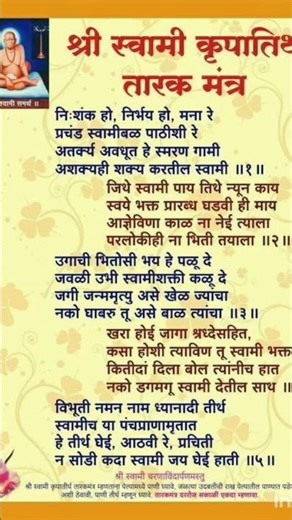 श्री स्वामी कृपातिथ
तारक मंत्र
स्वामी समर्थ ॥
निःशंक हो, निर्भय हो, मना रे
प्रचंड स्वामीबळ पाठीशी रे
अतर्क्य अवधूत हे स्मरण गामी
अशक्यही शक्य करतील स्वामी ॥१॥
जिथे स्वामी पाय तिथे न्यून काय
स्वये भक्त प्रारब्ध घडवी ही माय
आज्ञेविणा काळ ना नेई त्याला
परलोकीही ना भिती तयाला ॥२॥
उगाची भितोसी भय हे पळू दे
जवळी उभी स्वामीशक्ती कळू दे
जगी जन्ममृत्यु असे खेळ ज्यांचा
नको घाबरु तू असे बाळ त्यांचा ॥३॥
खरा होई जागा श्रध्देसहित,
कसा होशी त्याविण तू स्वामी भक्त
कितीदा दिला बोल त्यांनीच हात
नको डगमगू स्वामी देतील साथ ॥
विभूती नमन नाम ध्यानादी तीर्थ
स्वामीच या पंचप्राणामृतात
हे तीर्थ घेई, आठवी रे, प्रचिती
न सोडी कदा स्वामी जय घेई हाती ॥५॥
श्री स्वामी चरणाविंदार्पणमस्तु